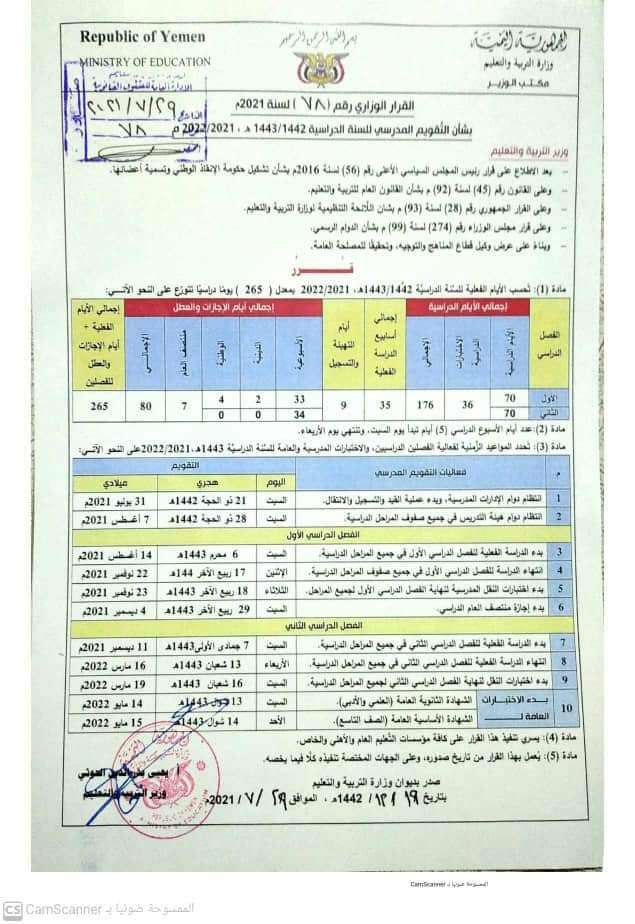 Republic of Yemen
MINISTRY OF EDUCATION
بسم الله الرحمن الرحيم
الجمهورية اليمنية
وزارة التربية والتعليم
مكتب الوزير
الإدارة العامة للشئون القانونية
التاريخ ٢٠٢١/٧/٢٩
٧٨
القرار الوزاري رقم (٧٨) لسنة 2021م
بشأن التقويم المدرسي للسنة الدراسية 1443/1442 هـ ، 2022/2021 م
وزير التربية والتعليم
– بعد الاطلاع على قرار رئيس المجلس السياسي الأعلى رقم (56) لسنة 2016م بشأن تشكيل حكومة الإنقاذ الوطني وتسمية أعضائها.
– وعلى القانون رقم (45) لسنة (92) م بشأن القانون العام للتربية والتعليم.
– وعلى القرار الجمهوري رقم (28) لسنة (93) م بشأن اللائحة التنظيمية لوزارة التربية والتعليم.
– وعلى قرار مجلس الوزراء رقم (274) لسنة (99) م بشأن الدوام الرسمي.
– وبناءً على عرض وكيل قطاع المناهج والتوجيه، وتحقيقًا للمصلحة العامة.
قـــرر
مادة (1): تُحسب الأيام الفعلية للسنة الدراسية 1443/1442هـ، 2022/2021م بمعدل ( 265 ) يومًا دراسيًا تتوزع على النحو الآتـــي:
الفصل الدراسي
إجمالي الأيام الدراسية
الأيام الدراسية
الاختبارات الدراسية
الإجمالي
إجمالي أسابيع الدراسة الفعلية
أيام التهيئة والتسجيل
إجمالي أيام الإجازات والعطل
الأسبوعية
الدينية
الوطنية
منتصف العام
الإجمالــي
إجمالي الأيام الفعلية + أيام الإجازات والعطل للفصلين
الأول 70 36 176 35 9 33 2 4 7 80 265
الثاني 70 34 0 0
مادة (2): عدد أيام الأسبوع الدراسي (5) أيام تبدأ يوم السبت، وتنتهي يوم الأربعاء.
مادة (3): تُحدد المواعيد الزمنية لفعالية الفصلين الدراسيين، والاختبارات المدرسية والعامة للسنة الدراسية 1443هـ، 2022/2021م على النحو الآتي:
م فعاليات التقويم المدرسي التقويم
اليوم هجري ميلادي
1 انتظام دوام الإدارات المدرسية، وبدء عملية القيد والتسجيل والانتقال. السبت 21 ذو الحجة 1442هـ 31 يوليو 2021م
2 انتظام دوام هيئة التدريس في جميع صفوف المراحل الدراسية. السبت 28 ذو الحجة 1442هـ 7 أغسطس 2021م
الفصل الدراسي الأول
3 بدء الدراسة الفعلية للفصل الدراسي الأول في جميع المراحل الدراسية. السبت 6 محرم 1443هـ 14 أغسطس 2021م
4 انتهاء الدراسة للفصل الدراسي الأول في جميع صفوف المراحل الدراسية. الإثنين 17 ربيع الآخر 144هـ 22 نوفمبر 2021م
5 بدء اختبارات النقل المدرسية لنهاية الفصل الدراسي الأول لجميع المراحل. الثلاثاء 18 ربيع الآخر 1443هـ 23 نوفمبر 2021م
6 بدء إجازة منتصف العام الدراسي. السبت 29 ربيع الآخر 1443هـ 4 ديسمبر 2021م
الفصل الدراسي الثاني
7 بدء الدراسة الفعلية للفصل الدراسي الثاني في جميع المراحل الدراسية. السبت 7 جمادى الأولى1443هـ 11 ديسمبر 2021م
8 انتهاء الدراسة الفعلية للفصل الدراسي الثاني في جميع المراحل الدراسية. الأربعاء 13 شعبان 1443هـ 16 مارس 2022م
9 بدء اختبارات النقل لنهاية الفصل الدراسي الثاني لجميع المراحل الدراسية. السبت 16 شعبان 1443هـ 19 مارس 2022م
10 بدء الاختبارات العامة لـ الشهادة الثانوية العامة (العلمي والأدبي). السبت 13 شوال 1443هـ 14 مايو 2022م
الشهادة الأساسية العامة (الصف التاسع). الأحد 14 شوال 1443هـ 15 مايو 2022م
مادة (4): يسري تنفيذ هذا القرار على كافة مؤسسات التعليم العام والأهلي والخاص.
مادة (5): يُعمل بهذا القرار من تاريخ صدوره، وعلى الجهات المختصة تنفيذه كلًا فيما يخصه.
صدر بديوان وزارة التربية والتعليم
بتاريخ ١٩/ ١٢/ 1442هـ ، الموافق ٢٩/ ٧/ 2021م
أ/ يحيى بدر الدين الحوثي
وزير التربية والتعليم
الممسوحة ضوئيا بـ CamScanner
CS CamScanner الممسوحة ضوئيا بـ